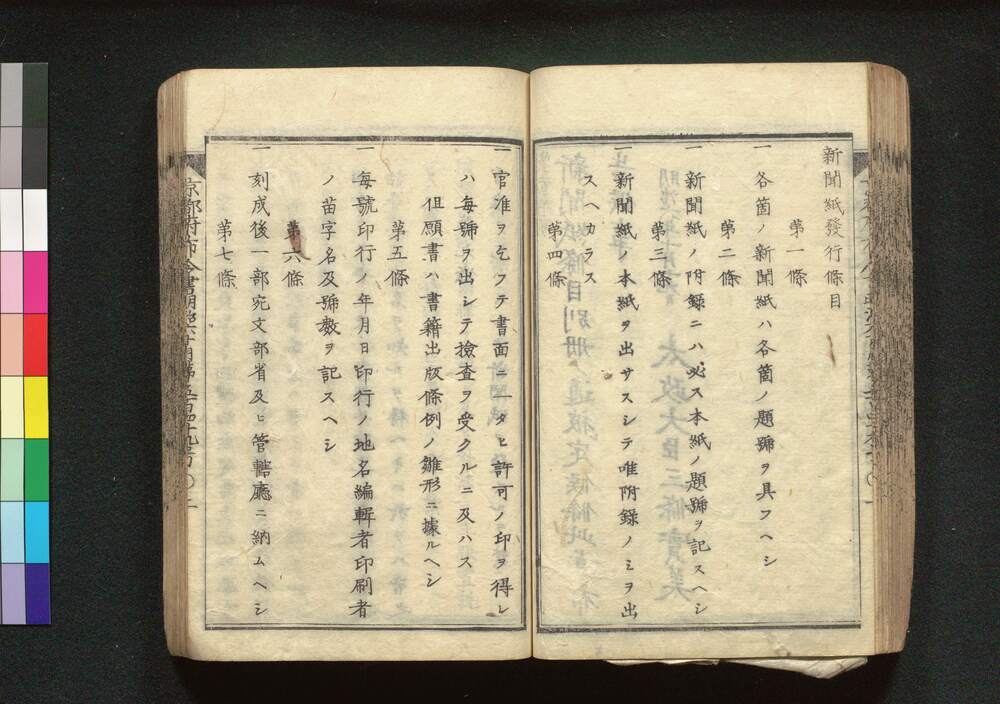 新聞紙發行條目
第一條
一 各箇ノ新聞紙ハ各箇ノ題號ヲ具フヘシ
第二條
一 新聞紙ノ附録ニハ必ス本紙ノ題號ヲ記スヘシ
第三條
一 新聞紙ノ本紙ヲ出サスシテ唯附録ノミヲ出
スヘカラス
第四條
一 官准ヲ乞フテ書面ニ一タヒ許可ノ印ヲ得レ
ハ毎號ヲ出シテ檢査ヲ受クルニ及ハス
但願書ハ書籍出版條例ノ雛形ニ據ルヘシ
第五條
一 毎號印行ノ年月日印行ノ地名編輯者印刷者
ノ苗字名及號數ヲ記スヘシ
第六條
一 刻成後一部宛文部省及ヒ管轄廳ニ納ムヘシ
第七條
京都府布令書明治六年十月第